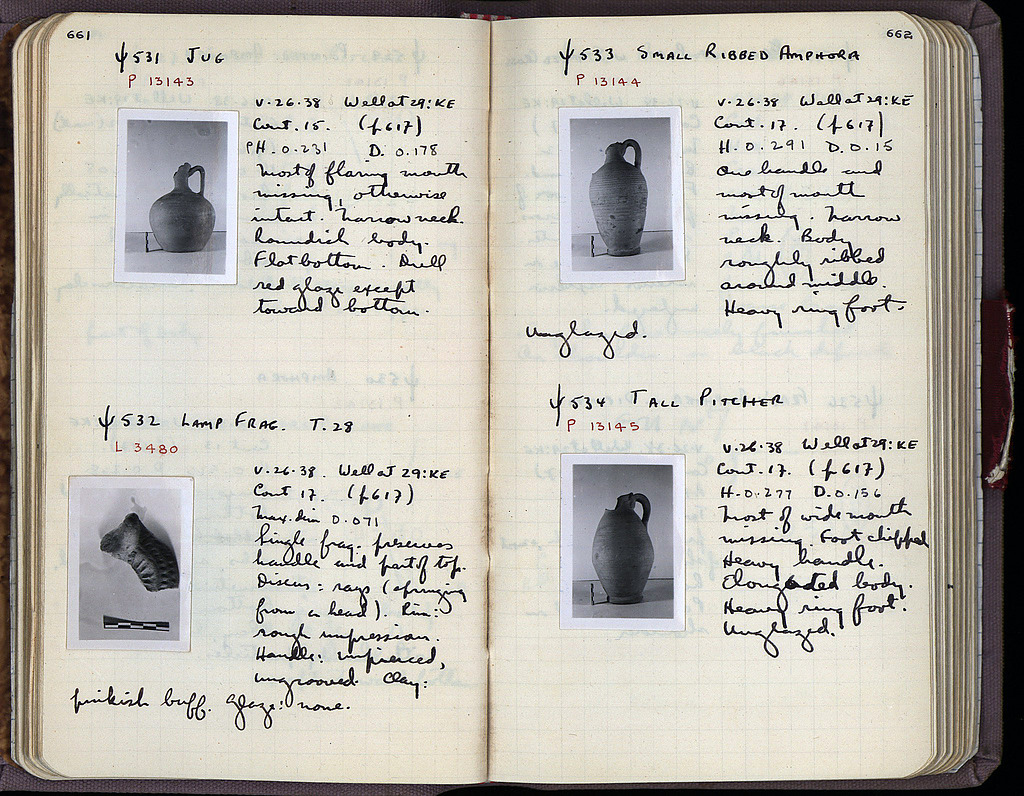 661
Ψ531 JUG
P 13143
V·26·38 Well at 29:KE
Cont. 15. (p617)
PH·0·231 D. 0.178
Most of flaring mouth
missing, otherwise
intact. Narrow neck.
Roundish body.
Flat bottom. Dull
red glaze except
toward bottom.
Ψ532 LAMP FRAG. T.28
L 3480
V·26·38. Well at 29:KE
Cont 17. (p617)
Max. dim 0.071
Single frag. preserves
handle and part of top.
Discus: rays (springing
from a head). Rim:
rough impression.
Handle: unpierced,
ungrooved. Clay:
pinkish buff. Glaze: none.
662
Ψ533 SMALL RIBBED AMPHORA
P 13144
V·26·38 Well at 29:KE
Cont. 17. (p617)
H. 0.291 D. 0.15
One handle and
most of mouth
missing. Narrow
neck. Body
roughly ribbed
around middle.
Heavy ring foot.
Unglazed.
Ψ534 TALL PITCHER
P 13145
V·26·38 Well at 29:KE
Cont. 17. (p617)
H·0·277 D.0.156
Most of wide mouth
missing. Foot chipped
Heavy handle.
Elongated body.
Heavy ring foot.
Unglazed.